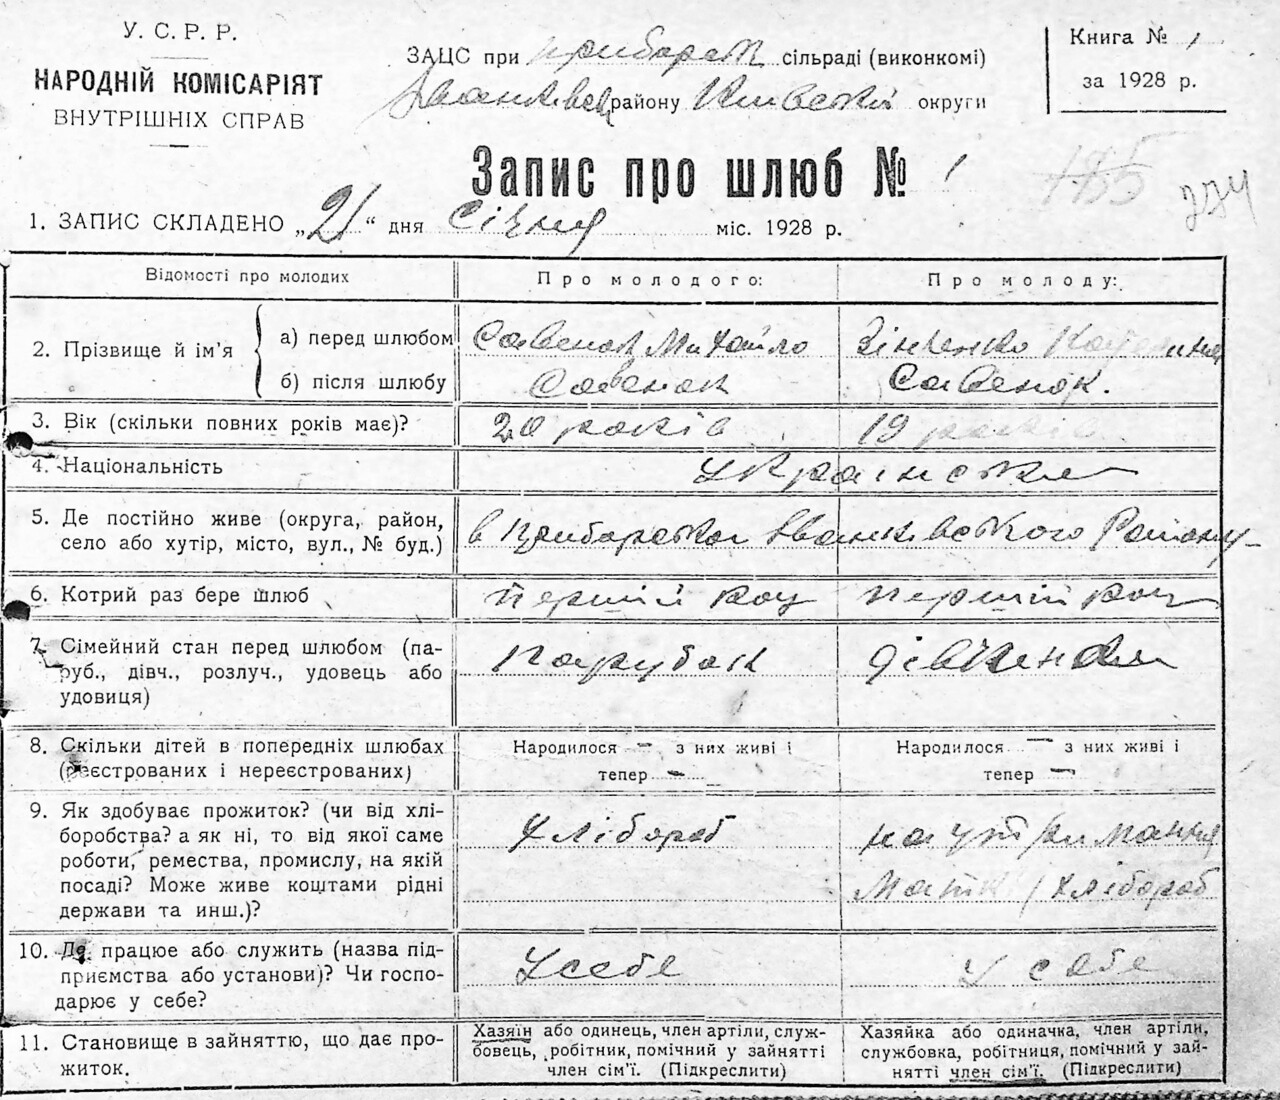 У. С. Р. Р.
НАРОДНІЙ КОМІСАРІЯТ
ВНУТРІШНІХ СПРАВ
ЗАЦС при сільраді (виконкомі)
району Київській округи
Книга № 1
за 1928 р.
Запис про шлюб № 1
185
224
1. ЗАПИС СКЛАДЕНО „21“ дня Січня міс. 1928 р.
Відомості про молодих Про молодого: Про молоду:
2. Прізвище й ім’я а) перед шлюбом Савенок Михайло Зінченко Катерина
б) після шлюбу Савенок Савенок.
3. Вік (скільки повних років має)? 20 років 19 років
4. Національність Українська
5. Де постійно живе (округа, район, село або хутір, місто, вул., № буд.) в Іванківського Району
6. Котрий раз бере шлюб Першій раз Першій раз
7. Сімейний стан перед шлюбом (па-
руб., дівч., розлуч., удовець або
удовиця) Парубок
8. Скільки дітей в попередніх шлюбах
(реєстрованих і нереєстрованих)
Народилося — з них живі і
тепер —
Народилося — з них живі і
тепер —
9. Як здобуває прожиток? (чи від хлі-
боробства? а як ні, то від якої саме
роботи, ремества, промислу, на якій
посаді? Може живе коштами рідні
держави та инш.)?
Хлібороб
на утримання
хлібороб
10. Де працює або служить (назва під-
приємства або установи)? Чи госпо-
дарює у себе?
У себе
У себе
11. Становище в зайняттю, що дає про-
житок.
Хазяїн або одинець, член артіли, служ-
бовець, робітник, помічний у зайнятті
член сім’ї. (Підкреслити)
Хазяйка або одиначка, член артіли,
службовка, робітниця, помічний у зай-
нятті член сім’ї. (Підкреслити)